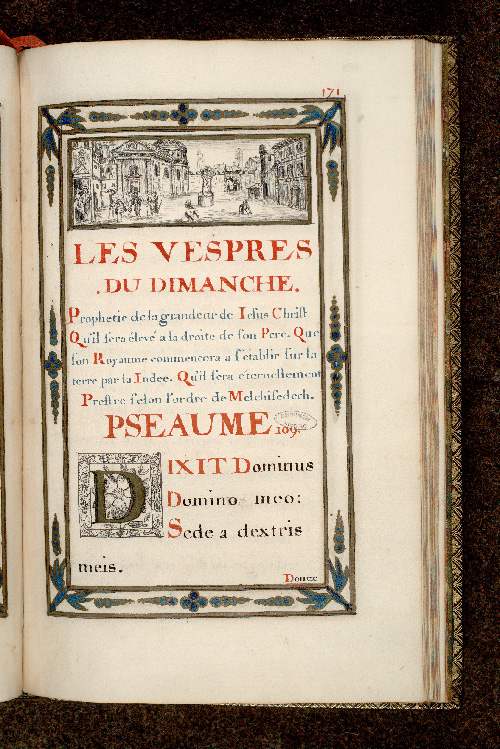 171
LES VESPRES
.DU DIMANCHE.
Prophetie de la grandeur de Iesus Christ
Qu'il sera élevé a la droite de son Pere. Que
son Royaume commencera a s'établir sur la
terre par la Iudee. Qu'il sera eternellement
Prestre selon l'ordre de Melchisedech.
PSEAUME 109.
DIXIT Dominus
Domino meo:
Sede a dextris
meis.
Donec